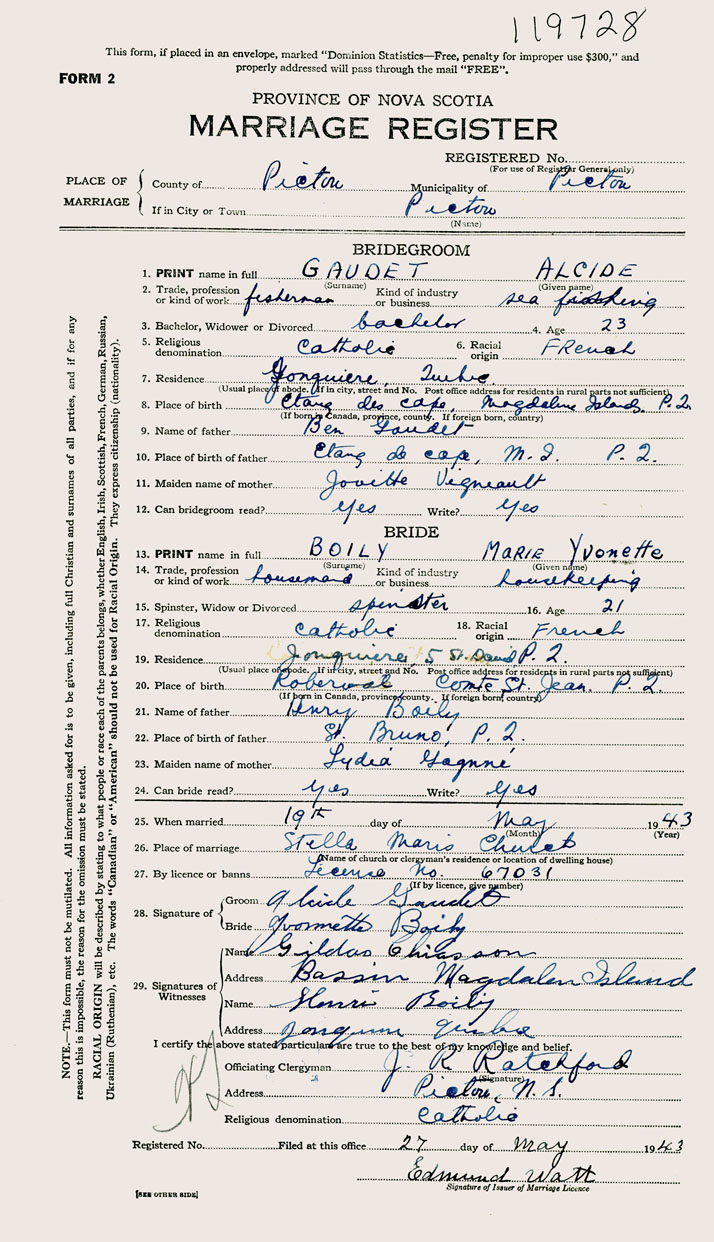 119728
This form, if placed in an envelope, marked "Dominion Statistics—Free, penalty for improper use $300," and
properly addressed will pass through the mail "FREE".
FORM 2
PROVINCE OF NOVA SCOTIA
MARRIAGE REGISTER
REGISTERED No.
(For use of Registrar General only)
PLACE OF MARRIAGE
County of Pictou Municipality of Pictou
If in City or Town Pictou
(Name)
BRIDEGROOM
1. PRINT name in full GAUDET ALCIDE
(Surname) (Given name)
2. Trade, profession or kind of work fisherman Kind of industry or business sea fishing
3. Bachelor, Widower or Divorced bachelor 4. Age 23
5. Religious denomination Catholic 6. Racial origin FRench
7. Residence Jonquiere, Quebec
(Usual place of abode. If in city, street and No. Post office address for residents in rural parts not sufficient)
8. Place of birth Etang des cape, Magdaline Islands, P.Q.
(If born in Canada, province, county. If foreign born, country)
9. Name of father Ben Gaudet
10. Place of birth of father Etang de cape, M.I. P.Q.
11. Maiden name of mother Jovitte Vigneault
12. Can bridegroom read? Yes Write? Yes
BRIDE
13. PRINT name in full BOILY MARIE YVONETTE
(Surname) (Given name)
14. Trade, profession or kind of work housemaid Kind of industry or business housekeeping
15. Spinster, Widow or Divorced spinster 16. Age 21
17. Religious denomination Catholic 18. Racial origin French
19. Residence Jonquiere, 5 St. David P.Q.
(Usual place of abode. If in city, street and No. Post office address for residents in rural parts not sufficient)
20. Place of birth Roberval Comte St Jean, P.Q.
(If born in Canada, province, county. If foreign born, country)
21. Name of father Henry Boily
22. Place of birth of father St. Bruno, P.Q.
23. Maiden name of mother Lydia Gagnné
24. Can bride read? Yes Write? Yes
25. When married 19th day of May 1943
(Month) (Year)
26. Place of marriage Stella Maris Church
(Name of church or clergyman's residence or location of dwelling house)
27. By licence or banns License No. 67031
(If by licence, give number)
28. Signature of
Groom Alcide Gaudet
Bride Yvonnette Boily
29. Signatures of Witnesses
Name Gildas Chiasson
Address Bassin Magdalen Island
Name Henri Boily
Address Quebec
I certify the above stated particulars are true to the best of my knowledge and belief.
Officiating Clergyman J. R. Ratchford
(Signature)
Address Pictou, N.S.
Religious denomination Catholic
Registered No. Filed at this office 27 day of May 1943
Edmund Watt
Signature of Issuer of Marriage Licence
[SEE OTHER SIDE]
NOTE.—This form must not be mutilated. All information asked for is to be given, including full Christian and surnames of all parties, and if for any
reason this is impossible, the reason for the omission must be stated.
RACIAL ORIGIN will be described by stating to what people or race each of the parents belongs, whether English, Irish, Scottish, French, German, Russian,
Ukrainian (Ruthenian), etc. The words "Canadian" or "American" should not be used for Racial Origin. They express citizenship (nationality).